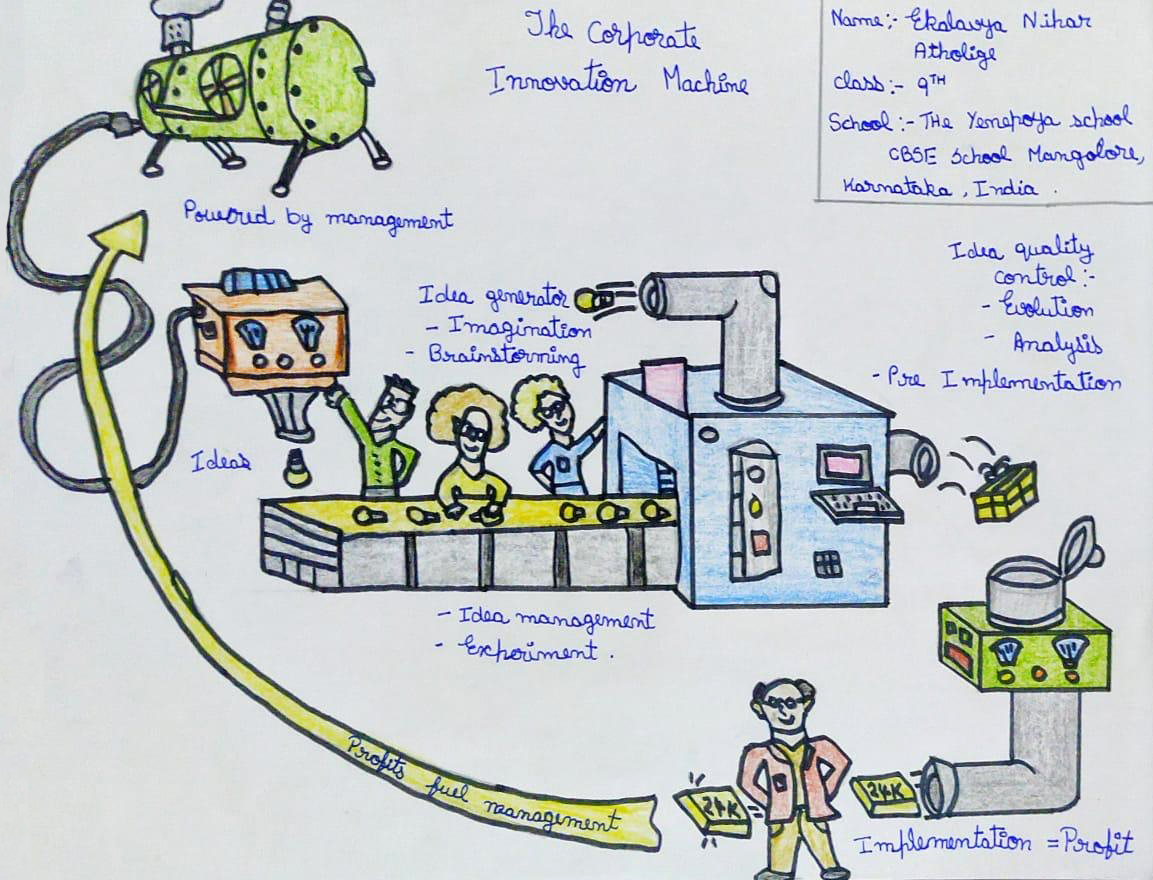 The Corporate
Innovation Machine
Name:- Ekalavya Nihar
Atholige
class:- 9TH
School:- THe Yenepoya school
CBSE School Mangalore,
Karnataka, India.
Powered by management
Idea generator
- Imagination
- Brainstorming
Idea quality
control:-
- Evolution
- Analysis
- Pre Implementation
Ideas
- Idea management
- Experiment.
Profits fuel management
24K
24K
Implementation = Profit